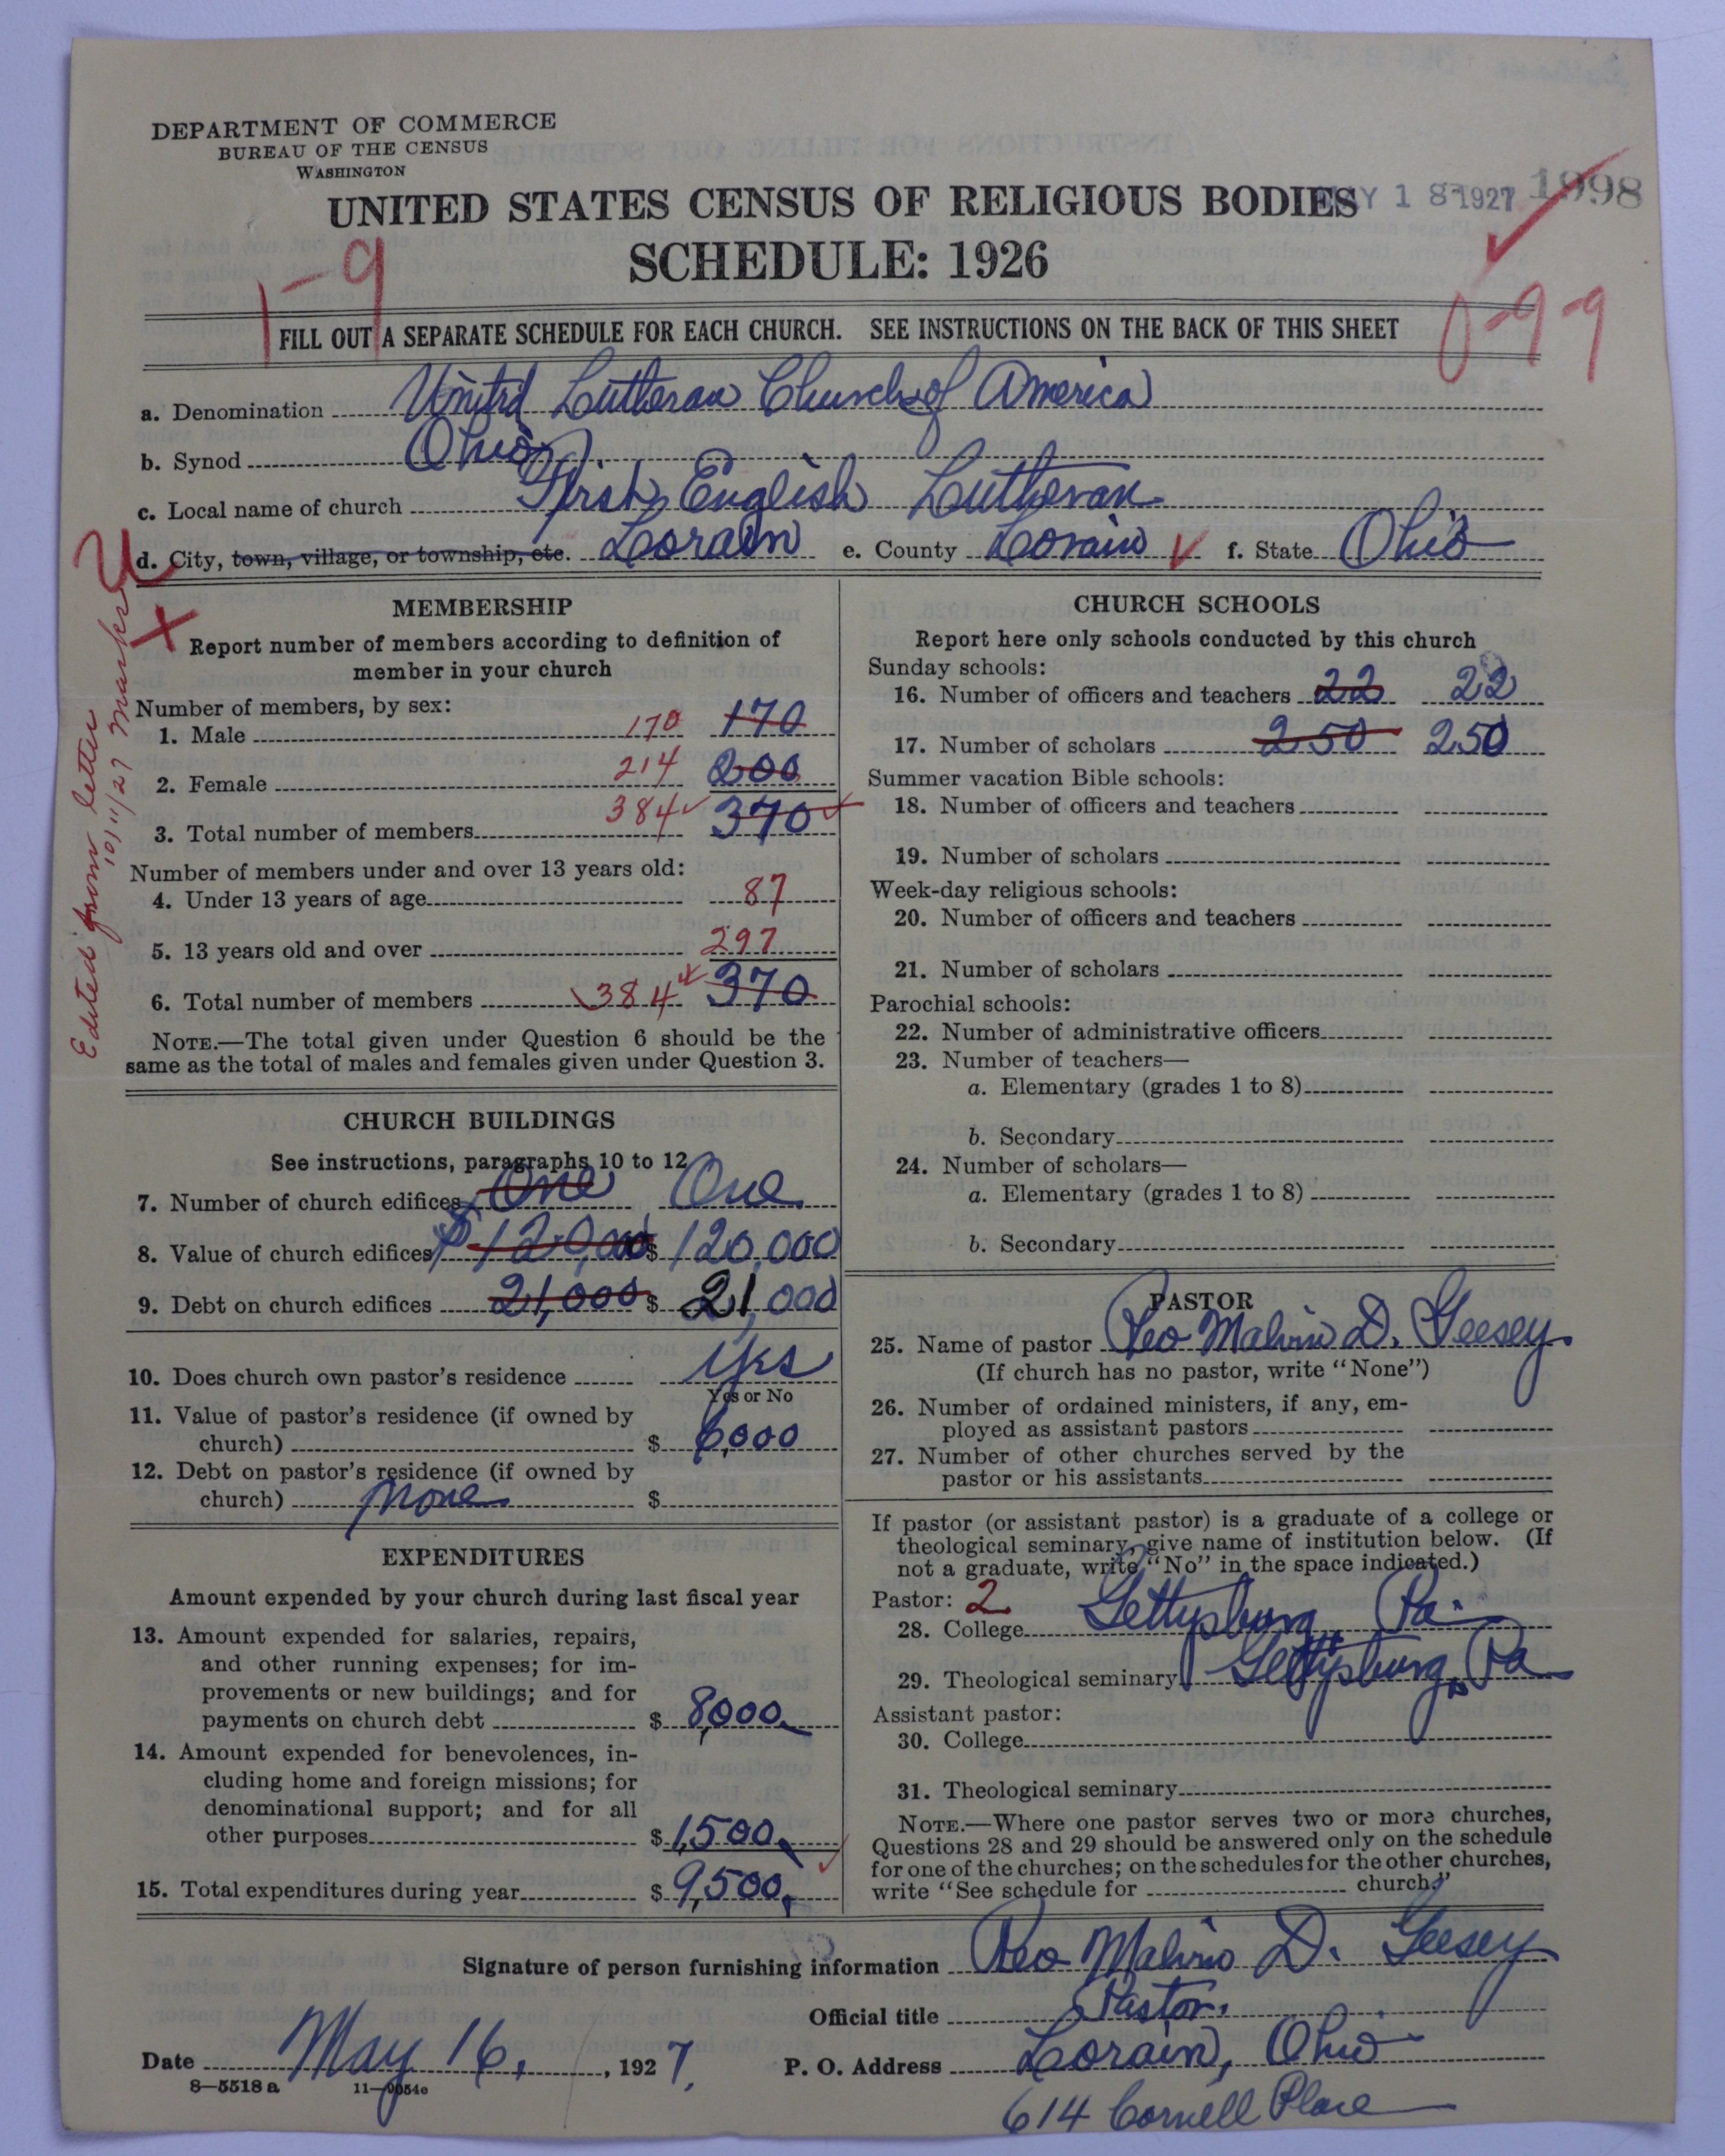 DEPARTMENT OF COMMERCE
BUREAU OF THE CENSUS
WASHINGTON
UNITED STATES CENSUS OF RELIGIOUS BODIES
Y 18 1927 1998
SCHEDULE: 1926
1-9
0-9-9
FILL OUT A SEPARATE SCHEDULE FOR EACH CHURCH. SEE INSTRUCTIONS ON THE BACK OF THIS SHEET
a. Denomination United Lutheran Church of America
b. Synod Ohio
c. Local name of church First English Lutheran
d. City, town, village, or township, etc. Lorain e. County Lorain f. State Ohio
Edited from letter
10/11/27 Marks
MEMBERSHIP
Report number of members according to definition of
member in your church
Number of members, by sex:
1. Male 170 170
2. Female 214 200
3. Total number of members 384 370
Number of members under and over 13 years old:
4. Under 13 years of age 87
5. 13 years old and over 297
6. Total number of members 384 370
NOTE.—The total given under Question 6 should be the
same as the total of males and females given under Question 3.
CHURCH BUILDINGS
See instructions, paragraphs 10 to 12
7. Number of church edifices One One
8. Value of church edifices $120,000 $ 120,000
9. Debt on church edifices 21,000 $ 21,000
10. Does church own pastor's residence Yes
Yes or No
11. Value of pastor's residence (if owned by
church) $ 6,000
12. Debt on pastor's residence (if owned by
church) None $
EXPENDITURES
Amount expended by your church during last fiscal year
13. Amount expended for salaries, repairs,
and other running expenses; for im-
provements or new buildings; and for
payments on church debt $ 8,000
14. Amount expended for benevolences, in-
cluding home and foreign missions; for
denominational support; and for all
other purposes $ 1,500
15. Total expenditures during year $ 9,500
CHURCH SCHOOLS
Report here only schools conducted by this church
Sunday schools:
16. Number of officers and teachers 22 22
17. Number of scholars 250 250
Summer vacation Bible schools:
18. Number of officers and teachers
19. Number of scholars
Week-day religious schools:
20. Number of officers and teachers
21. Number of scholars
Parochial schools:
22. Number of administrative officers
23. Number of teachers—
a. Elementary (grades 1 to 8)
b. Secondary
24. Number of scholars—
a. Elementary (grades 1 to 8)
b. Secondary
PASTOR
25. Name of pastor Rev Malvin D. Geesey
(If church has no pastor, write "None")
26. Number of ordained ministers, if any, em-
ployed as assistant pastors
27. Number of other churches served by the
pastor or his assistants
If pastor (or assistant pastor) is a graduate of a college or
theological seminary, give name of institution below. (If
not a graduate, write "No" in the space indicated.)
Pastor: 2
28. College Gettysburg Pa.
29. Theological seminary Gettysburg, Pa
Assistant pastor:
30. College
31. Theological seminary
NOTE.—Where one pastor serves two or more churches,
Questions 28 and 29 should be answered only on the schedule
for one of the churches; on the schedules for the other churches,
write "See schedule for church."
Signature of person furnishing information Rev Malvin D. Geesey
Official title Pastor.
Date May 16, 1927. P. O. Address Lorain, Ohio
8—5518a 11—9054c
614 Cornell Place